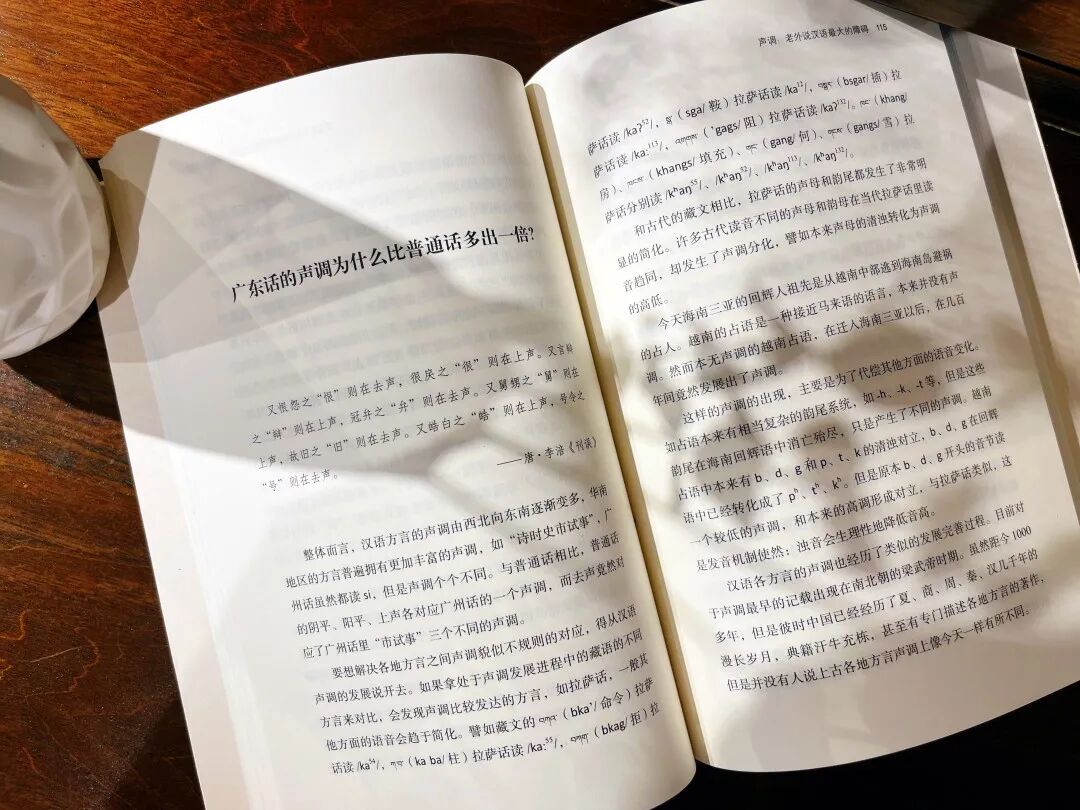 广东话的声调为什么比普通话多出一倍？
又恨怨之“恨”则在去声，很戾之“很”则在上声。又言辩
之“辩”则在上声，冠弁之“弁”则在去声。又舅甥之“舅”则在
上声，故旧之“旧”则在去声。又皓白之“皓”则在上声，号令之
“号”则在去声。
——唐·李涪《刊误》
整体而言，汉语方言的声调由西北向东南逐渐变多，华南
地区的方言普遍拥有更加丰富的声调，如“诗时史市试事”，广
州话虽然都读si，但是声调个个不同。与普通话相比，普通话
的阴平、阳平、上声各对应广州话的一个声调，而去声竟然对
应了广州话里“市试事”三个不同的声调。
要想解决各地方言之间声调貌似不规则的对应，得从汉语
声调的发展说开去。如果拿处于声调发展进程中的藏语的不同
方言来对比，会发现声调比较发达的方言，如拉萨话，一般其
他方面的语音会趋于简化。譬如藏文的བཀའ（bka'/命令）拉萨
话读/ka⁵⁴/，ཀ་བ（ka ba/柱）拉萨话读/ka:⁵⁵/，བཀག（bkag/拒）拉
声调：老外说汉语最大的障碍 115
萨话读/kaʔ⁵²/，སྒ（sga/鞍）拉萨话读/ka¹²/，བསྒར（bsgar/插）拉
萨话读/ka:¹¹³/，འགགས（'gags/阻）拉萨话读/kaʔ¹³²/。ཁང（khang/
房）、ཁངས（khangs/填充）、གང（gang/何）、གངས（gangs/雪）拉
萨话分别读/kʰaŋ⁵⁵/、/kʰaŋ⁵²/、/kʰaŋ¹¹³/、/kʰaŋ¹³²/。
和古代的藏文相比，拉萨话的声母和韵尾都发生了非常明
显的简化。许多古代读音不同的声母和韵母在当代拉萨话里读
音趋同，却发生了声调分化，譬如本来声母的清浊转化为声调
的高低。
今天海南三亚的回辉人祖先是从越南中部逃到海南岛避祸
的占人。越南的占语是一种接近马来语的语言，本来并没有声
调。然而本无声调的越南占语，在迁入海南三亚以后，在几百
年间竟然发展出了声调。
这样的声调的出现，主要是为了代偿其他方面的语音变化。
如占语本来有相当复杂的韵尾系统，如-h、-k、-t等，但是这些
韵尾在海南回辉语中消亡殆尽，只是产生了不同的声调。越南
占语中本来有b、d、g和p、t、k的清浊对立，b、d、g在回辉
语中已经转化成了pʰ、tʰ、kʰ。但是原本b、d、g开头的音节读
一个较低的声调，和本来的高调形成对立，与拉萨话类似，这
是发音机制使然：浊音会生理性地降低音高。
汉语各方言的声调也经历了类似的发展完善过程。目前对
于声调最早的记载出现在南北朝的梁武帝时期。虽然距今1000
多年，但是彼时中国已经经历了夏、商、周、秦、汉几千年的
漫长岁月，典籍汗牛充栋，甚至有专门描述各地方言的著作，
但是并没有人说上古各地方言声调上像今天一样有所不同。